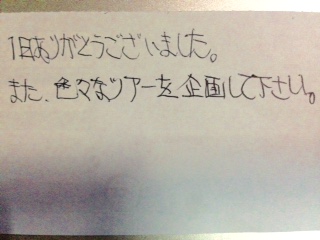 1日ありがとうございました。
また、色々なツアーを企画して下さい。